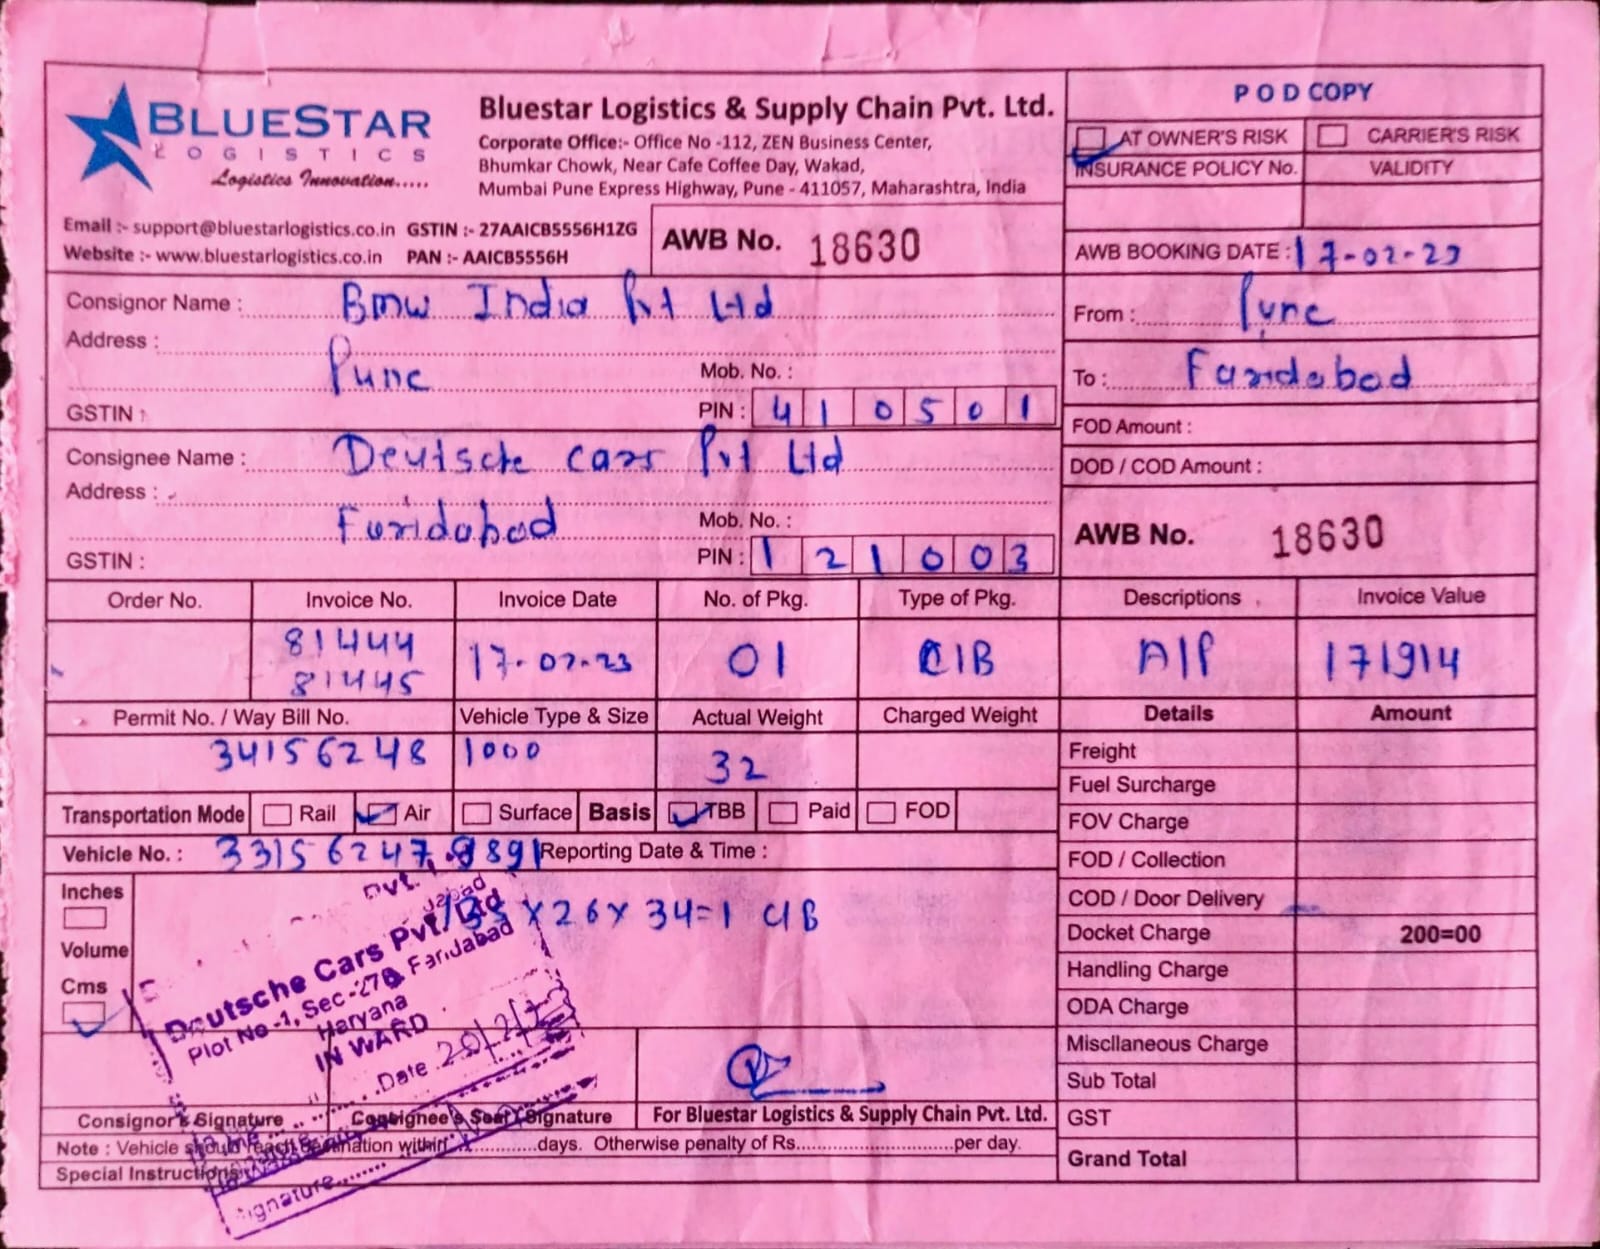 BLUESTAR
LOGISTICS
Logistics Innovation.....
Bluestar Logistics & Supply Chain Pvt. Ltd.
Corporate Office:- Office No -112, ZEN Business Center,
Bhumkar Chowk, Near Cafe Coffee Day, Wakad,
Mumbai Pune Express Highway, Pune - 411057, Maharashtra, India
Email :- support@bluestarlogistics.co.in GSTIN :- 27AAICB5556H1ZG
Website :- www.bluestarlogistics.co.in PAN :- AAICB5556H
AWB No. 18630
POD COPY
AT OWNER'S RISK CARRIER'S RISK
INSURANCE POLICY No. VALIDITY
AWB BOOKING DATE : 17-02-23
Consignor Name : Bmw India Pvt Ltd
Address :
Pune
Mob. No. :
GSTIN :
PIN : 410501
From : Pune
To : Faridabad
FOD Amount :
DOD / COD Amount :
Consignee Name : Deutsche cars Pvt Ltd
Address :
Faridabad
Mob. No. :
GSTIN :
PIN : 121003
AWB No. 18630
Order No. Invoice No. Invoice Date No. of Pkg. Type of Pkg. Descriptions Invoice Value
81444
81445
17-02-23 01 C/B A/P 171914
Permit No. / Way Bill No. Vehicle Type & Size Actual Weight Charged Weight Details Amount
34156248 1000 32
Transportation Mode Rail Air Surface Basis TBB Paid FOD
Vehicle No. : Reporting Date & Time :
Inches
Volume
Cms
X 26 X 34 = 1 C/B
Deutsche Cars Pvt. Ltd
Plot No.-1, Sec.-27B, Faridabad
Haryana
IN WARD
Date 20/2/23
Signature
Freight
Fuel Surcharge
FOV Charge
FOD / Collection
COD / Door Delivery
Docket Charge 200=00
Handling Charge
ODA Charge
Miscllaneous Charge
Sub Total
GST
Grand Total
Consignor's Signature Consignee's Seal / Signature For Bluestar Logistics & Supply Chain Pvt. Ltd.
Note : Vehicle should reach destination within.............days. Otherwise penalty of Rs......................per day.
Special Instructions